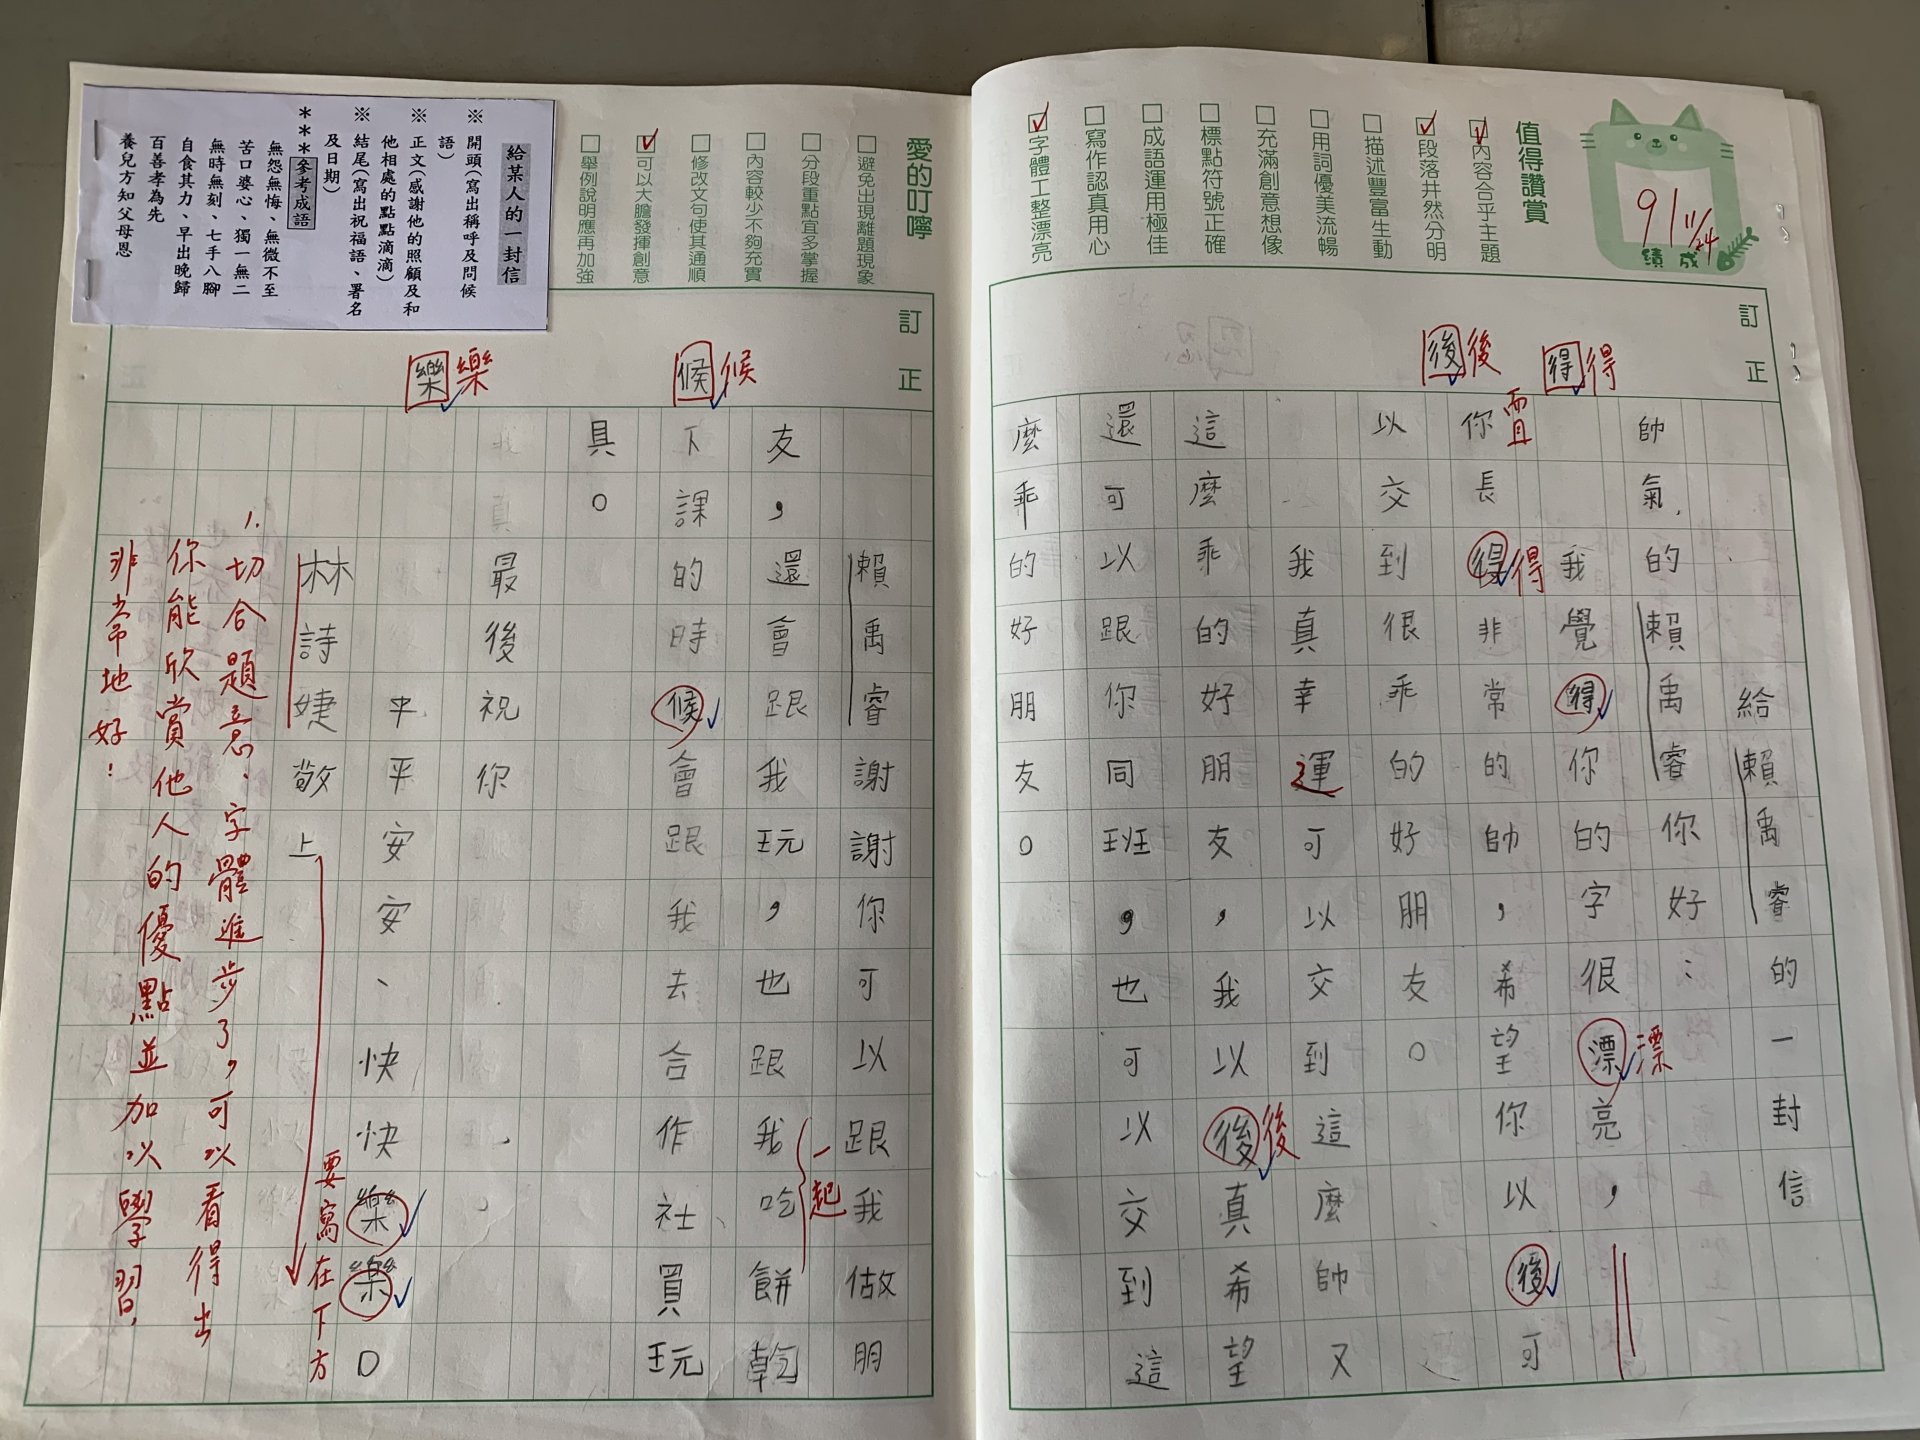 91
11/24
成績
值得讚賞
內容合乎主題
段落井然分明
描述豐富生動
用詞優美流暢
充滿創意想像
標點符號正確
成語運用極佳
寫作認真用心
字體工整漂亮
訂正
得得
後後
給賴禹睿的一封信
帥氣的賴禹睿你好:
我覺得你的字很漂亮,
漂
置
你長得非常的帥,希望你以後可
得
以交到很乖的好朋友。
我真幸運可以交到這麼帥又
這麼乖的好朋友,我以後真希望
後
還可以跟你同班,也可以交到這
麼乖的好朋友。
愛的叮嚀
避免出現離題現象
分段重點宜多掌握
內容較少不夠充實
修改文句使其通順
可以大膽發揮創意
舉例說明應再加強
訂正
候候
樂樂
賴禹睿謝謝你可以跟我做朋
友,還會跟我玩,也跟我吃餅乾
一起
下課的時候會跟我去合作社買玩
具。
最後祝你
平平安安、快快樂樂。
要寫在下方
林詩婕敬上
1.切合題意、字體進步了,可以看得出
你能欣賞他人的優點並加以學習,
非常地好!
給某人的一封信
※開頭(寫出稱呼及問候
語)
※正文(感謝他的照顧及和
他相處的點點滴滴)
※結尾(寫出祝福語、署名
及日期)
***參考成語
無怨無悔、無微不至
苦口婆心、獨一無二
無時無刻、七手八腳
自食其力、早出晚歸
百善孝為先
養兒方知父母恩